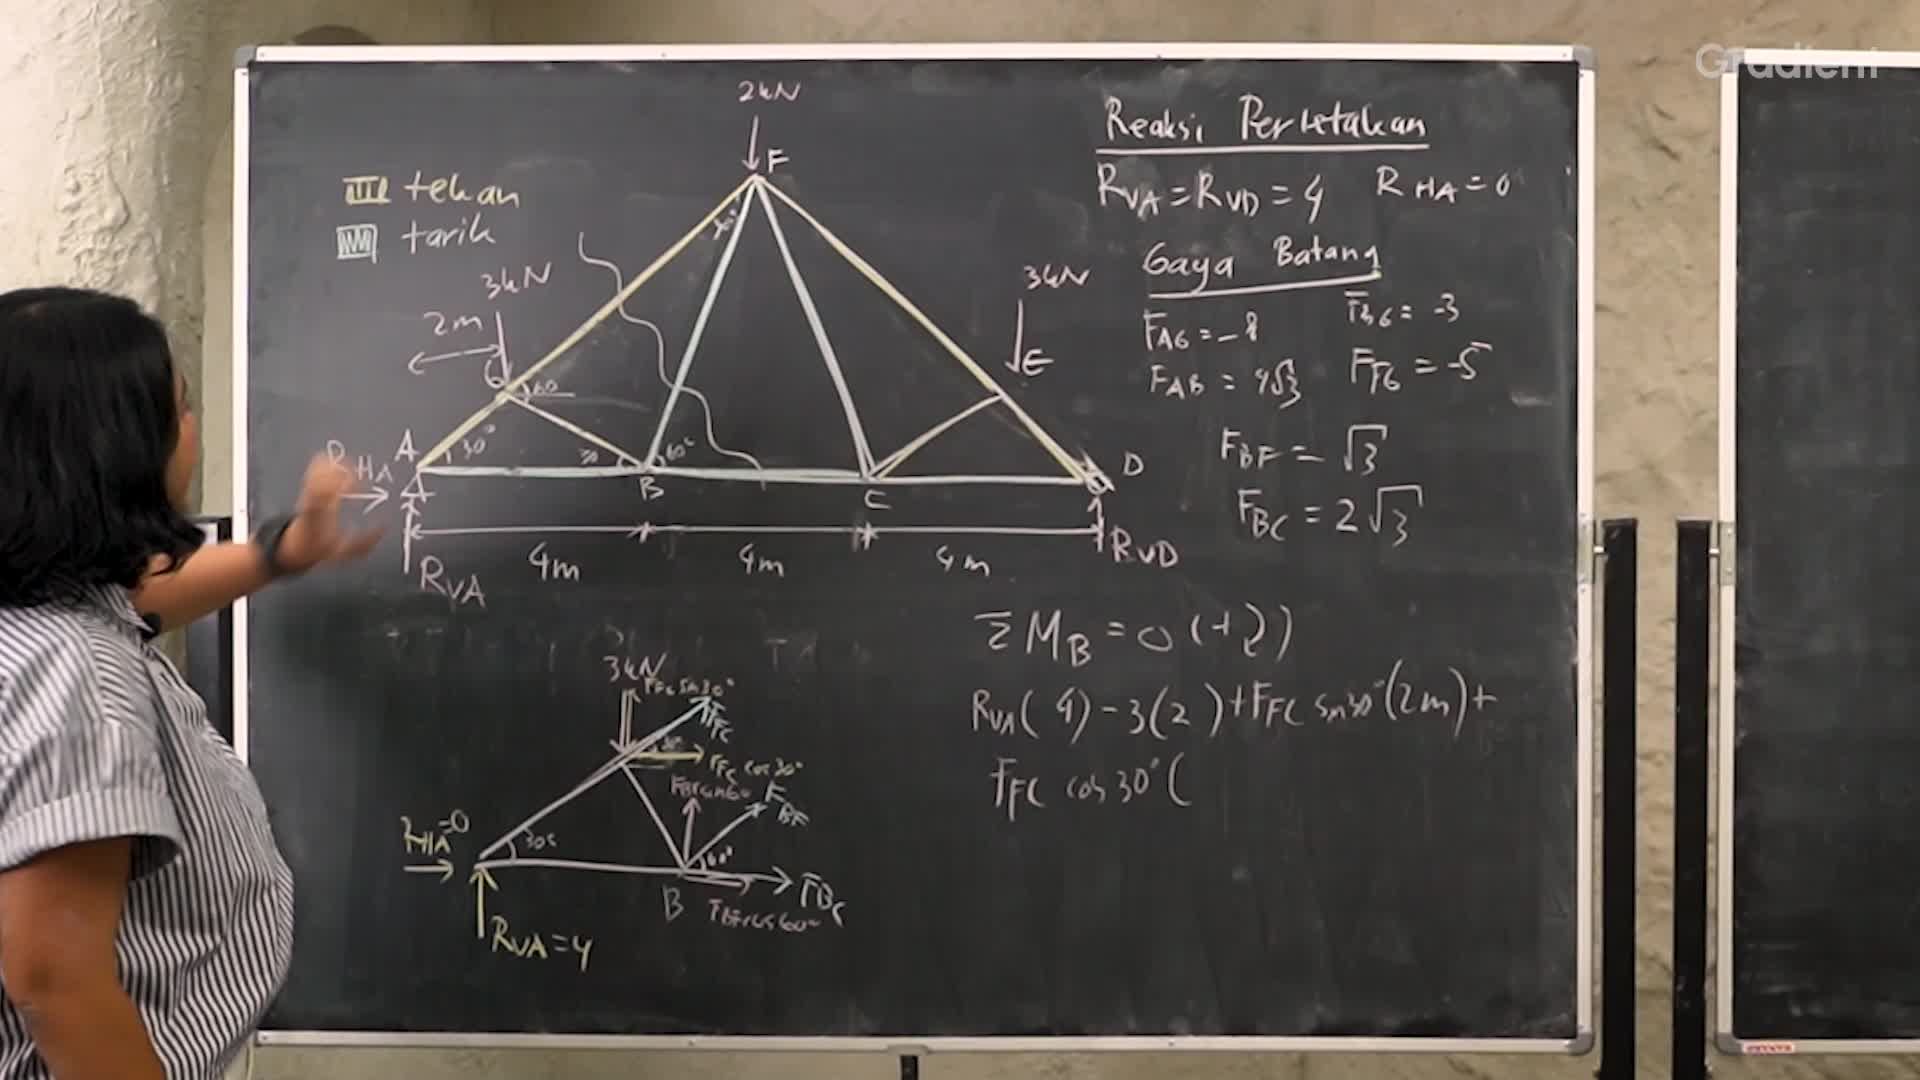 Gradient
2kN
F
tekan
tarik
30°
3kN
2m
G
60
A
30°
RHA
30
60°
B
C
D
3kN
E
4m
4m
4m
RVA
RVD
Reaksi Perletakan
RVA = RVD = 4 RHA = 0
Gaya Batang
FAG = -8 FBG = -3
FAB = 4√3 FFG = -5
FBF = √3
FBC = 2√3
ΣMB = 0 (+
RVA (4) - 3(2) + FFC sin30° (2m) +
FFC cos 30° (
3kN
FFC sin30°
FFC
30°
FFC cos30°
FBF sin60
FBF
RHA=0
30°
60°
B
FBC
FBF cos60°
RVA = 4